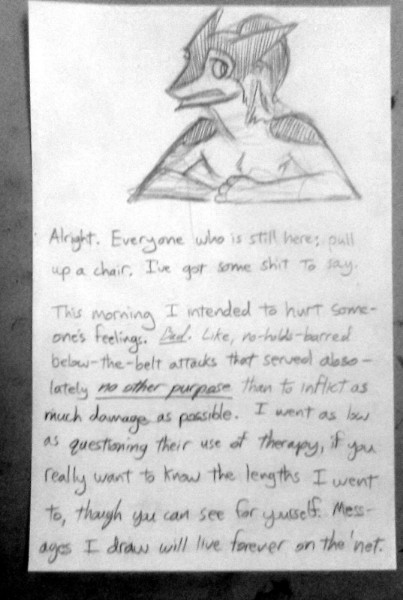 Alright. Everyone who is still here; pull
up a chair. I've got some shit to say.
This morning I intended to hurt some-
one's feelings. Bad. Like, no-holds-barred
below-the-belt attacks that served abso-
lutely no other purpose than to inflict as
much damage as possible. I went as low
as questioning their use of therapy, if you
really want to know the lengths I went
to, though you can see for yourself. Mess-
ages I draw will live forever on the 'net.